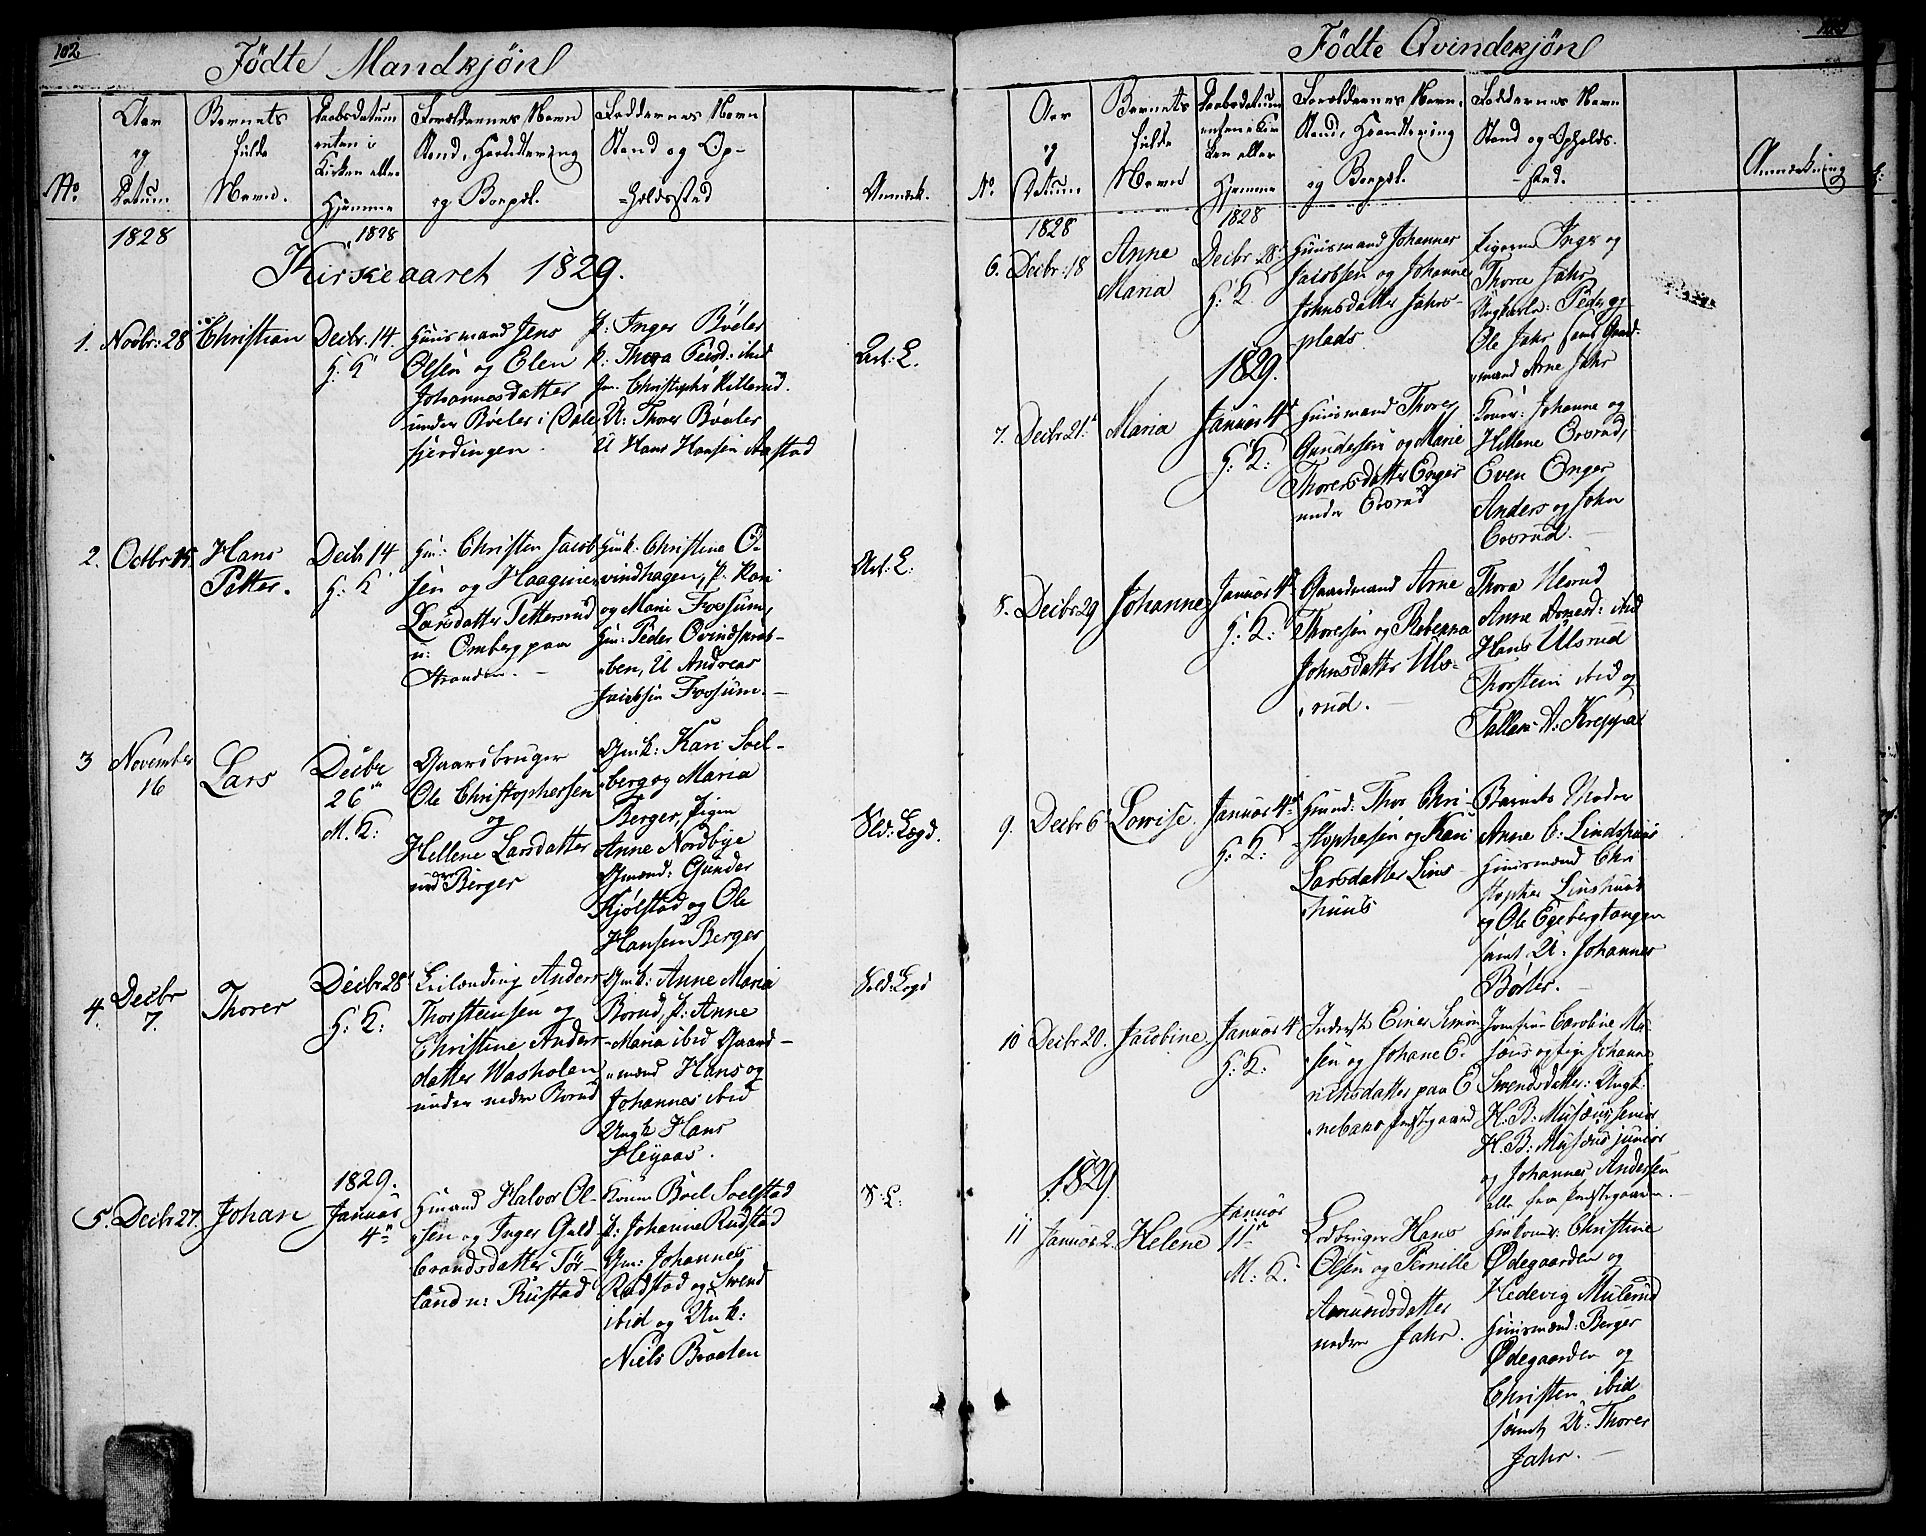 102
Födte Mandkjön
No
Aar
og
Datum
Barnets
fulde
Navn.
Daabsdatum
enten i
Kirken eller
Hjemme
Forældrenes Navn
Stand, Handtering
og Bopæl.
Faddernes Navn
Stand og Op-
holdssted
Anmærk.
1828
1828
Kirkeaaret 1829.
1.
Novbr: 28
Christian
Decbr. 14.
H: K
Huusmand Jens
Olsen og Elen
Johannesdatter
under Böeler i Oale
fjerdingen.
P: Inger Böeler
P: Thora Peersd: ibid
Gm. Christopher Killerud.
U: Thorer Böeler
U Hans Hansen Aastad
Art: L.
2.
Octbr 15.
Hans
Petter.
Decbr 14
H: K
Hm: Christen Jacob
sen og Haagine
Larsdatter Pettersrud
u: Omberg paa
Stranden.
Hmk: Christine Ö-
vindhagen, P. Kari
og Mari Fossum,
Hm: Peder Övindsrös-
ben, U Andreas
Jacobsen Fossum.
Art: L:
3
November
16
Lars
Decbr
26
M. K:
Gaardbruger
Ole Christophersen
og
Hellene Larsdatter
nedre Berger
Gmk: Kari Soel-
berg og Maria
Berger, Pigen
Anne Nordbye
Gmænd: Gunder
Kjölstad og Ole
Hansen Berger
Sld: Lægd.
4.
Decbr
7.
Thorer
Decbr 28
H: K:
Leilænding Anders
Thorsteinsen og
Christine Anders
datter Washolen
under nedre Borud
Gmk: Anne Maria
Borud, P: Anne
Maria ibid Gaard-
mænd Hans og
Johannes ibid
Ungk Hans
Heyaas.
Sold: Lægd
5.
Decbr 27.
Johan
1829.
Januar
4
Hmand Halvor Ol-
sen og Inger Guld
brandsdatter Tör-
land u: Rustad
Kone Böel Soelstad
P: Johanne Rustad
Gm: Johannes
Rustad og Svend
ibid og Unk:
Niels Braaten
S: L:
Födte Qvindekjön
No.
Aar
og
Datum
Barnets
fulde
Navn
Daabsdatum
enten i Kir
ken eller
Hjemme
Forældrenes Navn,
Stand, Handtering
og Bopæl.
Faddernes Navn
Stand og Opholds-
sted.
Anmærkning
1828
1828
6.
Decbr: 18
Anne
Maria
Decbr 28
H: K
Huusmand Johannes
Jacobsen og Johanne
Johnsdatter Jahrs-
plads
Pigerne Inger og
Thora Jahr
Ungkarle: Peder og
Ole Jahr samt Gaard-
mand Arne Jahr
1829.
7.
Decbr 21.
Maria
Januar 4
H: K:
Huusmand Thorer
Gundersen og Marie
Thorersdatter Enger
under Evsrud
Koner: Johanne og
Hellene Evsrud,
Even Enger
Anders og John
Evsrud.
8.
Decbr 29
Johanne
Januar 4
H: K:
Gaardmand Arne
Thoresen og Rebekka
Johnsdatter Uls-
rud.
Thora Ulsrud
Anne Arnesd: ibid
Hans Ulsrud
Thorstein ibid og
Tallak A. Kreppa
9.
Decbr 6
Lovise.
Januar 4
H: K:
Hmnd: Thor Chri-
stophersen og Kari
Larsdatter Lins-
huus
Barnets Moder
Anne C: Lindshuus
Huusmænd Chri
stopher Linshuus
og Ole Egebergtangen
samt U: Johannes
Böeler.
10
Decbr 20.
Jacobine
Januar 4
H: K:
Inderst Einer Simon
sen og Johane E-
richsdatter paa E
nebaks Præstgaard
Jomfrue Caroline Mu-
sæus og Pige Johanne
Svendsdatter: Ungk:
H. B: Musæus senior
H. B: Musæus junior
og Johannes Andersen
alle fra Præstegaarden.
1829
11
Januar 2.
Helene
Januar
11
M: K.
Lodbruger Hans
Olsen og Pernille
Amundsdatter
nedre Jahr.
Hmkoner: Christine
Ödegaarden og
Hedevig Mulerud
Huusmænd: Berger
Ödegaarden og
Christen ibid
samt U: Thorer
Jahr.